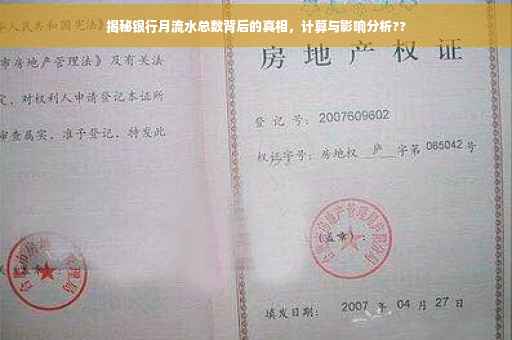 揭秘银行月流水总数背后的真相，计算与影响分析??
华人民共和国宪法》
市房地产管理法》及有关法
定，对权利人申请登记本证所
审查属实，准予登记，特发此
房地产权证
登记号：2007609602
权证字号：房地权 庐 字第 085042 号
（盖章）：
填发日期：2007 年 04 月 27 日